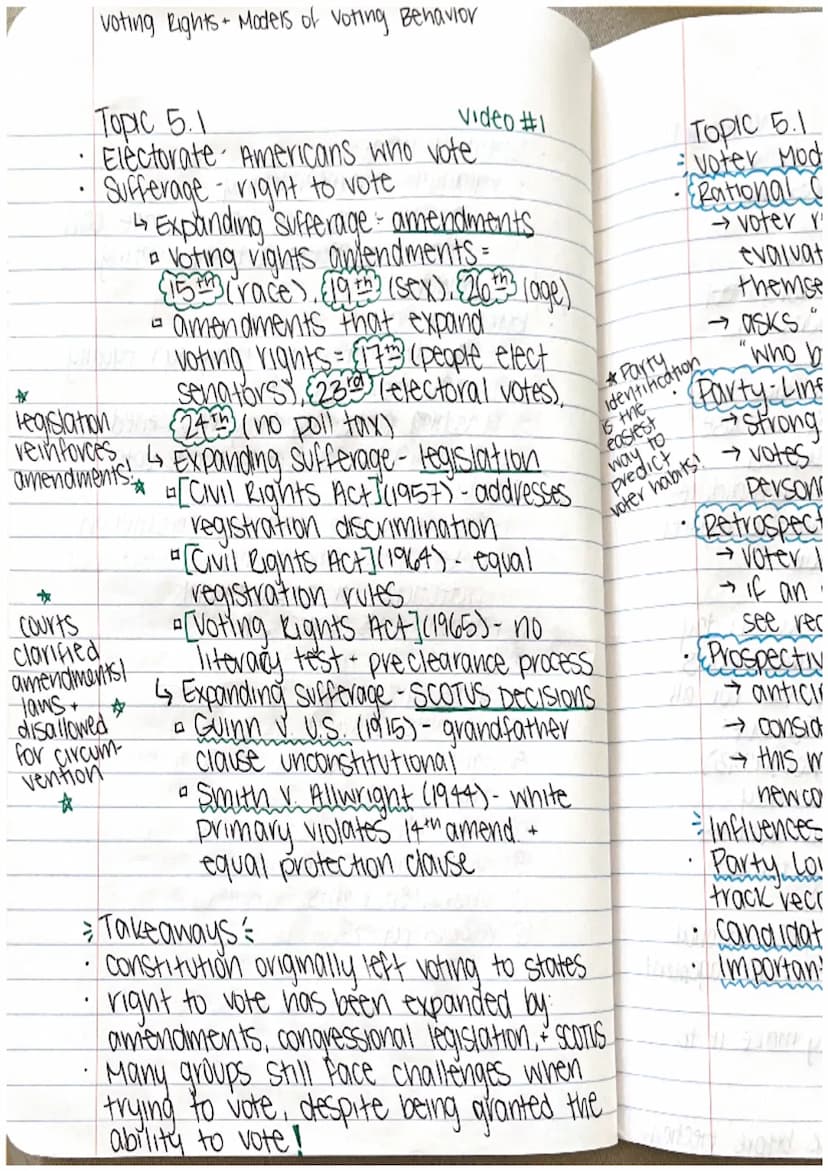 Voting Rights + Models of Voting Behavior
Topic 5.1
video #1
· Electorate - Americans who vote
· Sufferage - right to vote
↳ Expanding Sufferage - amendments
▫ voting rights amendments =
15th (race), 19th (sex), 26th (age)
▫ amendments that expand
voting rights = 17th (people elect
senators), 23rd (electoral votes),
24th (no poll tax)
↳ Expanding Sufferage - legislation
▫ [Civil Rights Act] (1957) - addresses
registration discrimination
▫ [Civil Rights Act] (1964) - equal
registration rules
▫ [Voting Rights Act] (1965) - no
literacy test + preclearance process
↳ Expanding Sufferage - SCOTUS DECISIONS
▫ Guinn v. U.S. (1915) - grandfather
clause unconstitutional
▫ Smith v. Allwright (1944) - white
primary violates 14th amend +
equal protection clause
☆
legislation
reinforces
amendments! ☆
☆
courts
clarified
amendments/
laws + ☆
disallowed
for circum-
vention
☆
Takeaways
· Constitution originally left voting to states
· right to vote has been expanded by:
amendments, congressional legislation, + SCOTUS
· Many groups still face challenges when
trying to vote, despite being granted the
ability to vote!
★ Party
identification
is the
easiest
way to
predict
voter habits!
Topic 5.1
Voter Mod
· Rational C
→ voter r
evaluat
themse
→ asks "
"who b
· Party-Line
→ strong
→ votes
person
· Retrospect
→ voter
→ if an
see rec
· Prospectiv
→ antici
→ consid
→ this m
newco
Influences
· Party Loy
track reco
· Candidat
· Important